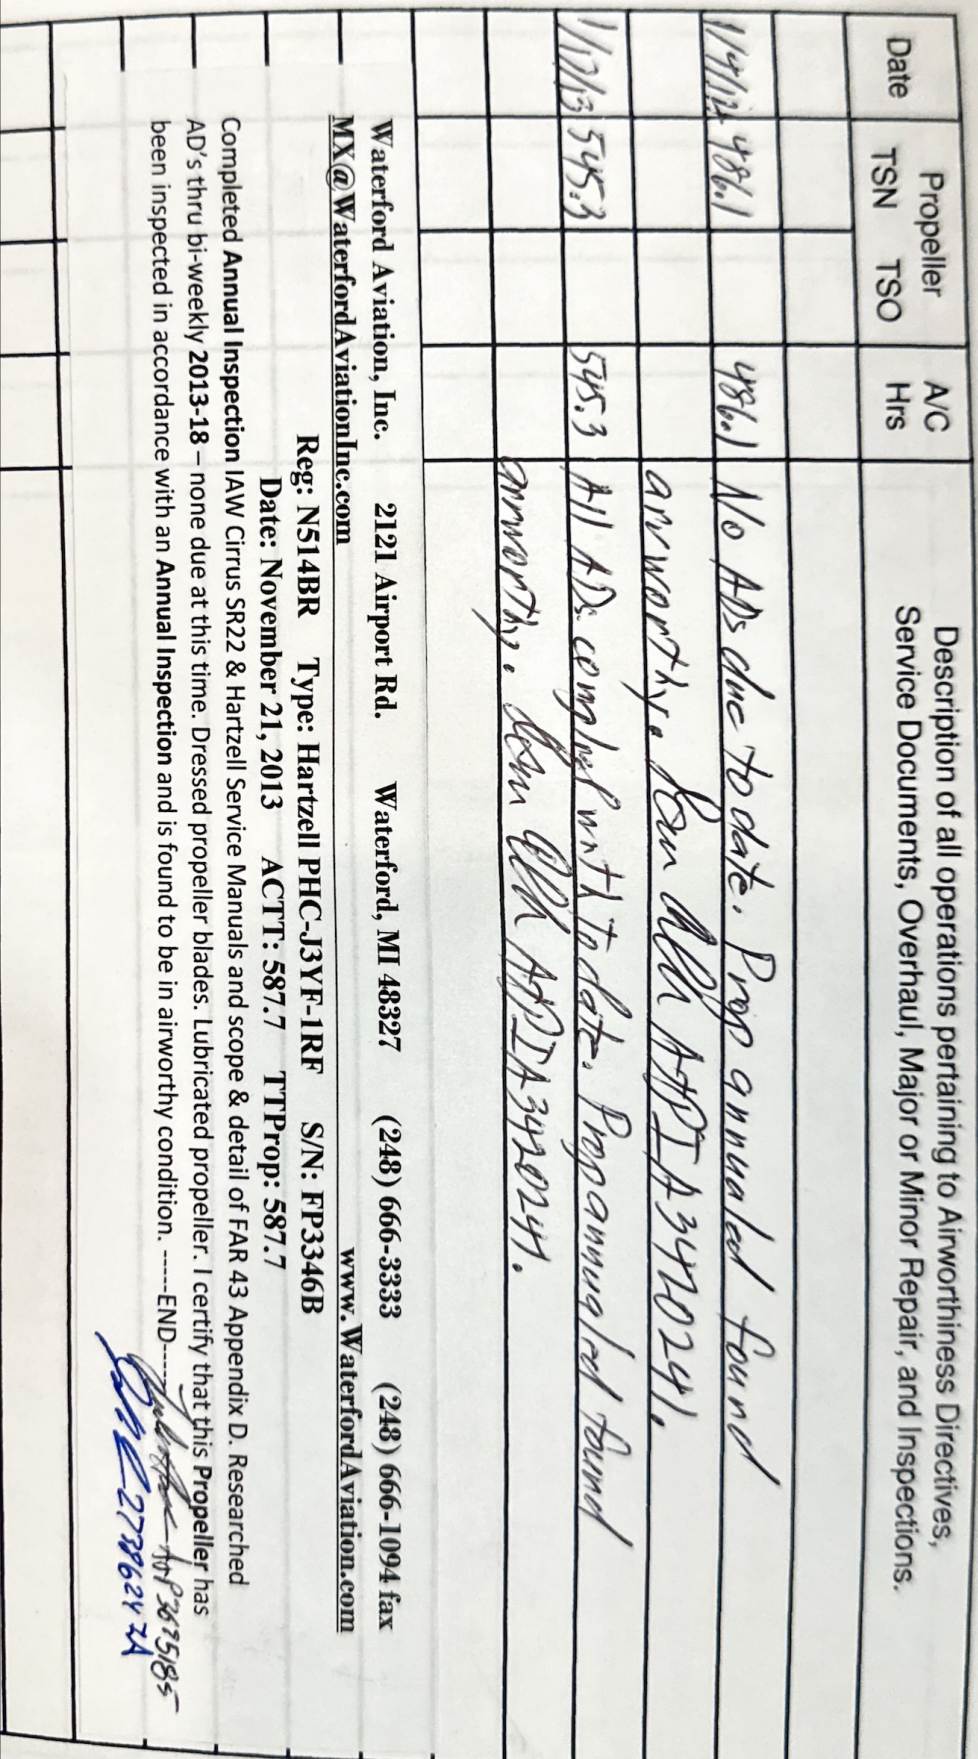 Date
Propeller
TSN TSO
A/C
Hrs
Description of all operations pertaining to Airworthiness Directives,
Service Documents, Overhaul, Major or Minor Repair, and Inspections.
486.1 486.1 No ADs due to date. Prop annualed found
airworthy. A&PIA3420241.
1/17/13 545.3 545.3 All ADs complyed with to date. Prop annualed found
airworthy. A&PIA3420241.
Waterford Aviation, Inc. 2121 Airport Rd. Waterford, MI 48327 (248) 666-3333 (248) 666-1094 fax
MX@WaterfordAviationInc.com www.WaterfordAviation.com
Reg: N514BR Type: Hartzell PHC-J3YF-1RF S/N: FP3346B
Date: November 21, 2013 ACTT: 587.7 TTProp: 587.7
Completed Annual Inspection IAW Cirrus SR22 & Hartzell Service Manuals and scope & detail of FAR 43 Appendix D. Researched
AD's thru bi-weekly 2013-18 – none due at this time. Dressed propeller blades. Lubricated propeller. I certify that this Propeller has
been inspected in accordance with an Annual Inspection and is found to be in airworthy condition. -----END-----
A&P 3675185
2738624 IA